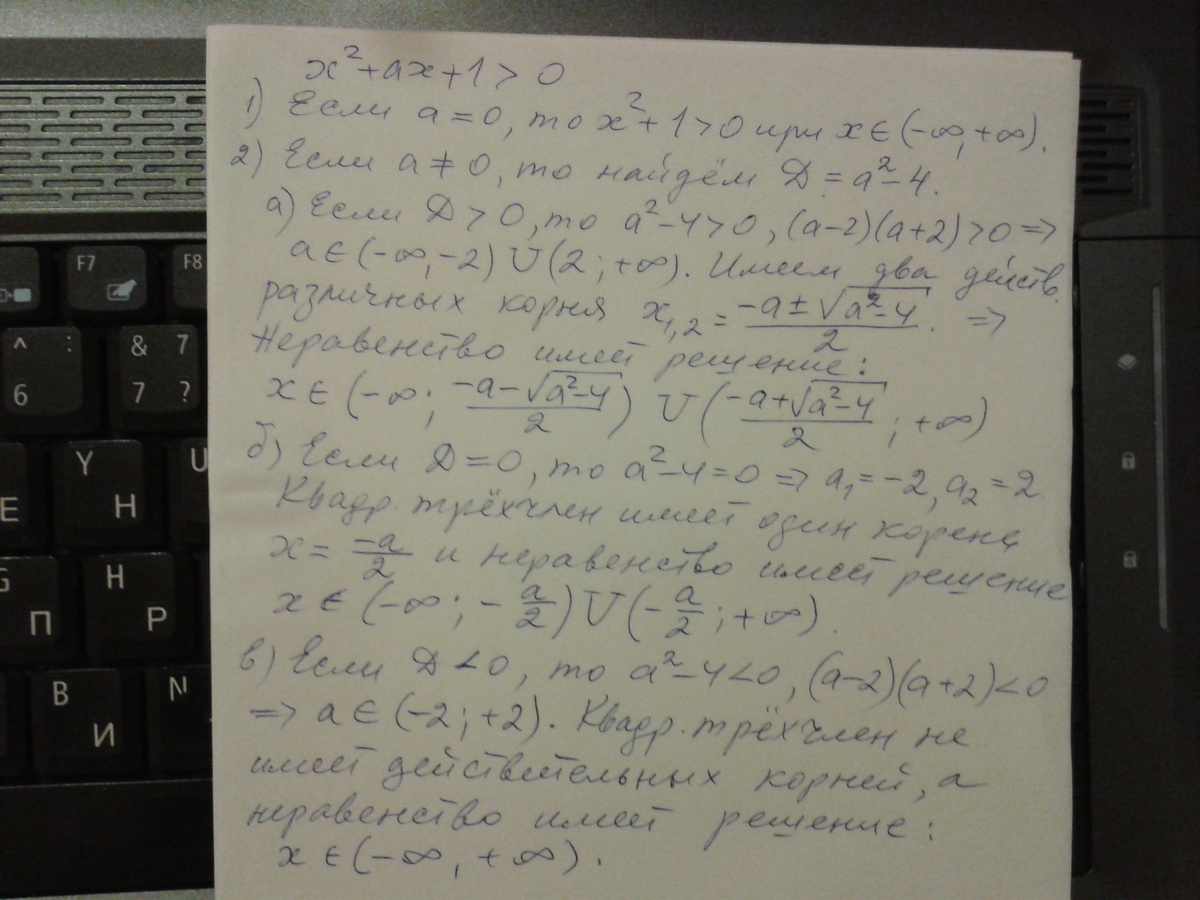 x²+ax+1>0
1) Если a=0, то x²+1>0 при x∈(-∞,+∞).
2) Если a≠0, то найдём D=a²-4.
а) Если D>0, то a²-4>0, (a-2)(a+2)>0 =>
a∈(-∞,-2)∪(2;+∞). Имеем два действ.
различных корня x₁,₂ = (-a±√(a²-4))/2. =>
Неравенство имеет решение:
x∈(-∞; (-a-√(a²-4))/2) ∪ ((-a+√(a²-4))/2; +∞)
б) Если D=0, то a²-4=0 => a₁=-2, a₂=2
Квадр. трёхчлен имеет один корень
x = -a/2 и неравенство имеет решение
x∈(-∞; -a/2)∪(-a/2; +∞).
в) Если D<0, то a²-4<0, (a-2)(a+2)<0
=> a∈(-2;+2). Квадр. трёхчлен не
имеет действительных корней, а
неравенство имеет решение:
x∈(-∞,+∞).
F7
F8
^ :
6
& 7
7 ?
Y
Н
U
Е
G
П
H
Р
В
И
N